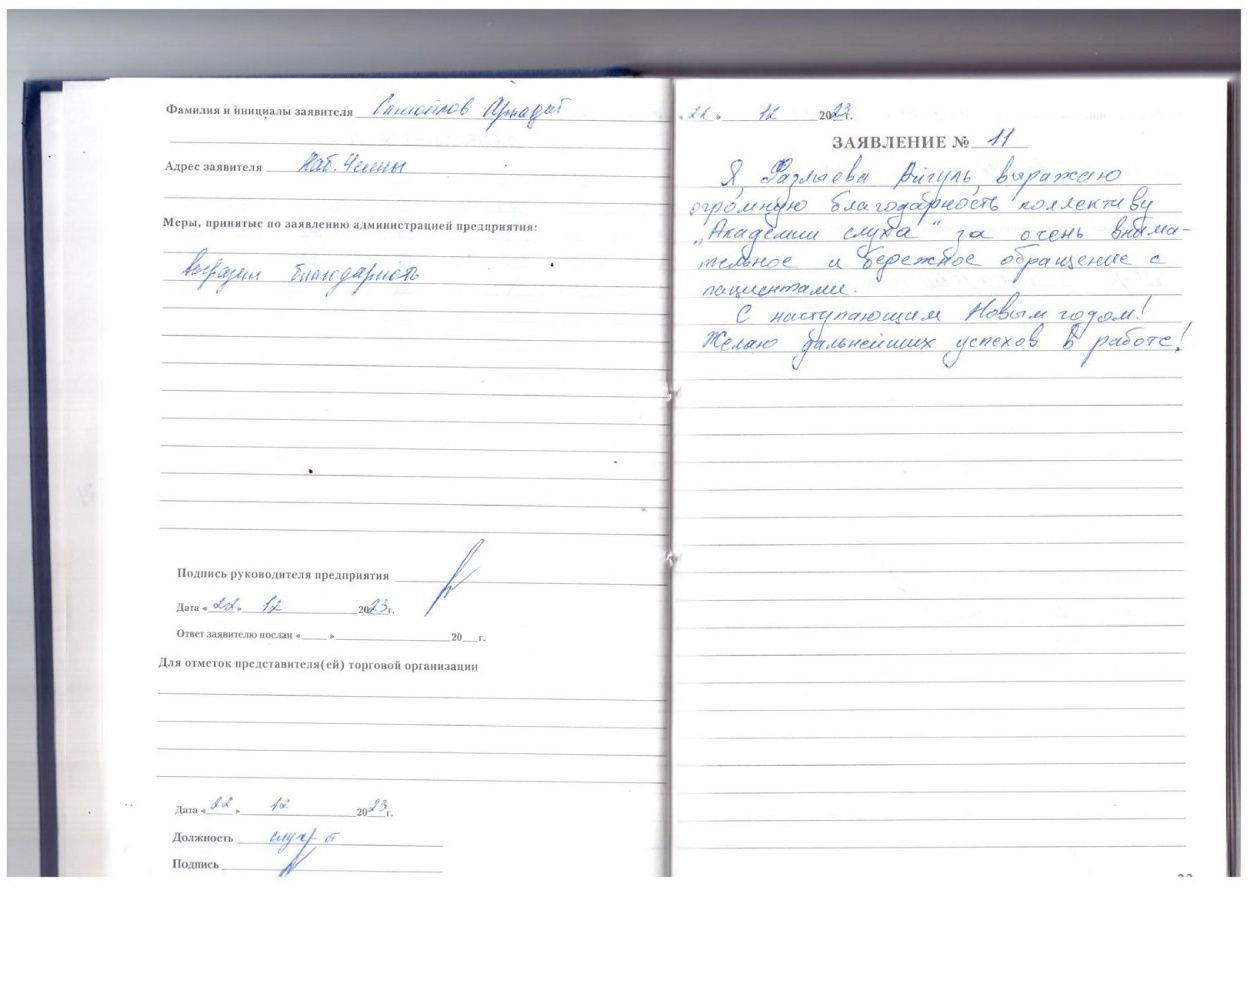 Фамилия и инициалы заявителя Самойлов Аркадий
Адрес заявителя Наб. Челны
Меры, принятые по заявлению администрацией предприятия:
выразили благодарность
Подпись руководителя предприятия
Дата « 22 » 12 2023г.
Ответ заявителю послан « » 20 г.
Для отметок представителя(ей) торговой организации
Дата « 22 » 12 2023г.
Должность
Подпись
« 22 » 12 2023г.
ЗАЯВЛЕНИЕ № 11
Я, Фазлыева Айгуль, выражаю
огромную благодарность коллективу
„Академии слуха" за очень внима-
тельное и бережное обращение с
пациентами.
С наступающим Новым годом!
Желаю дальнейших успехов в работе!